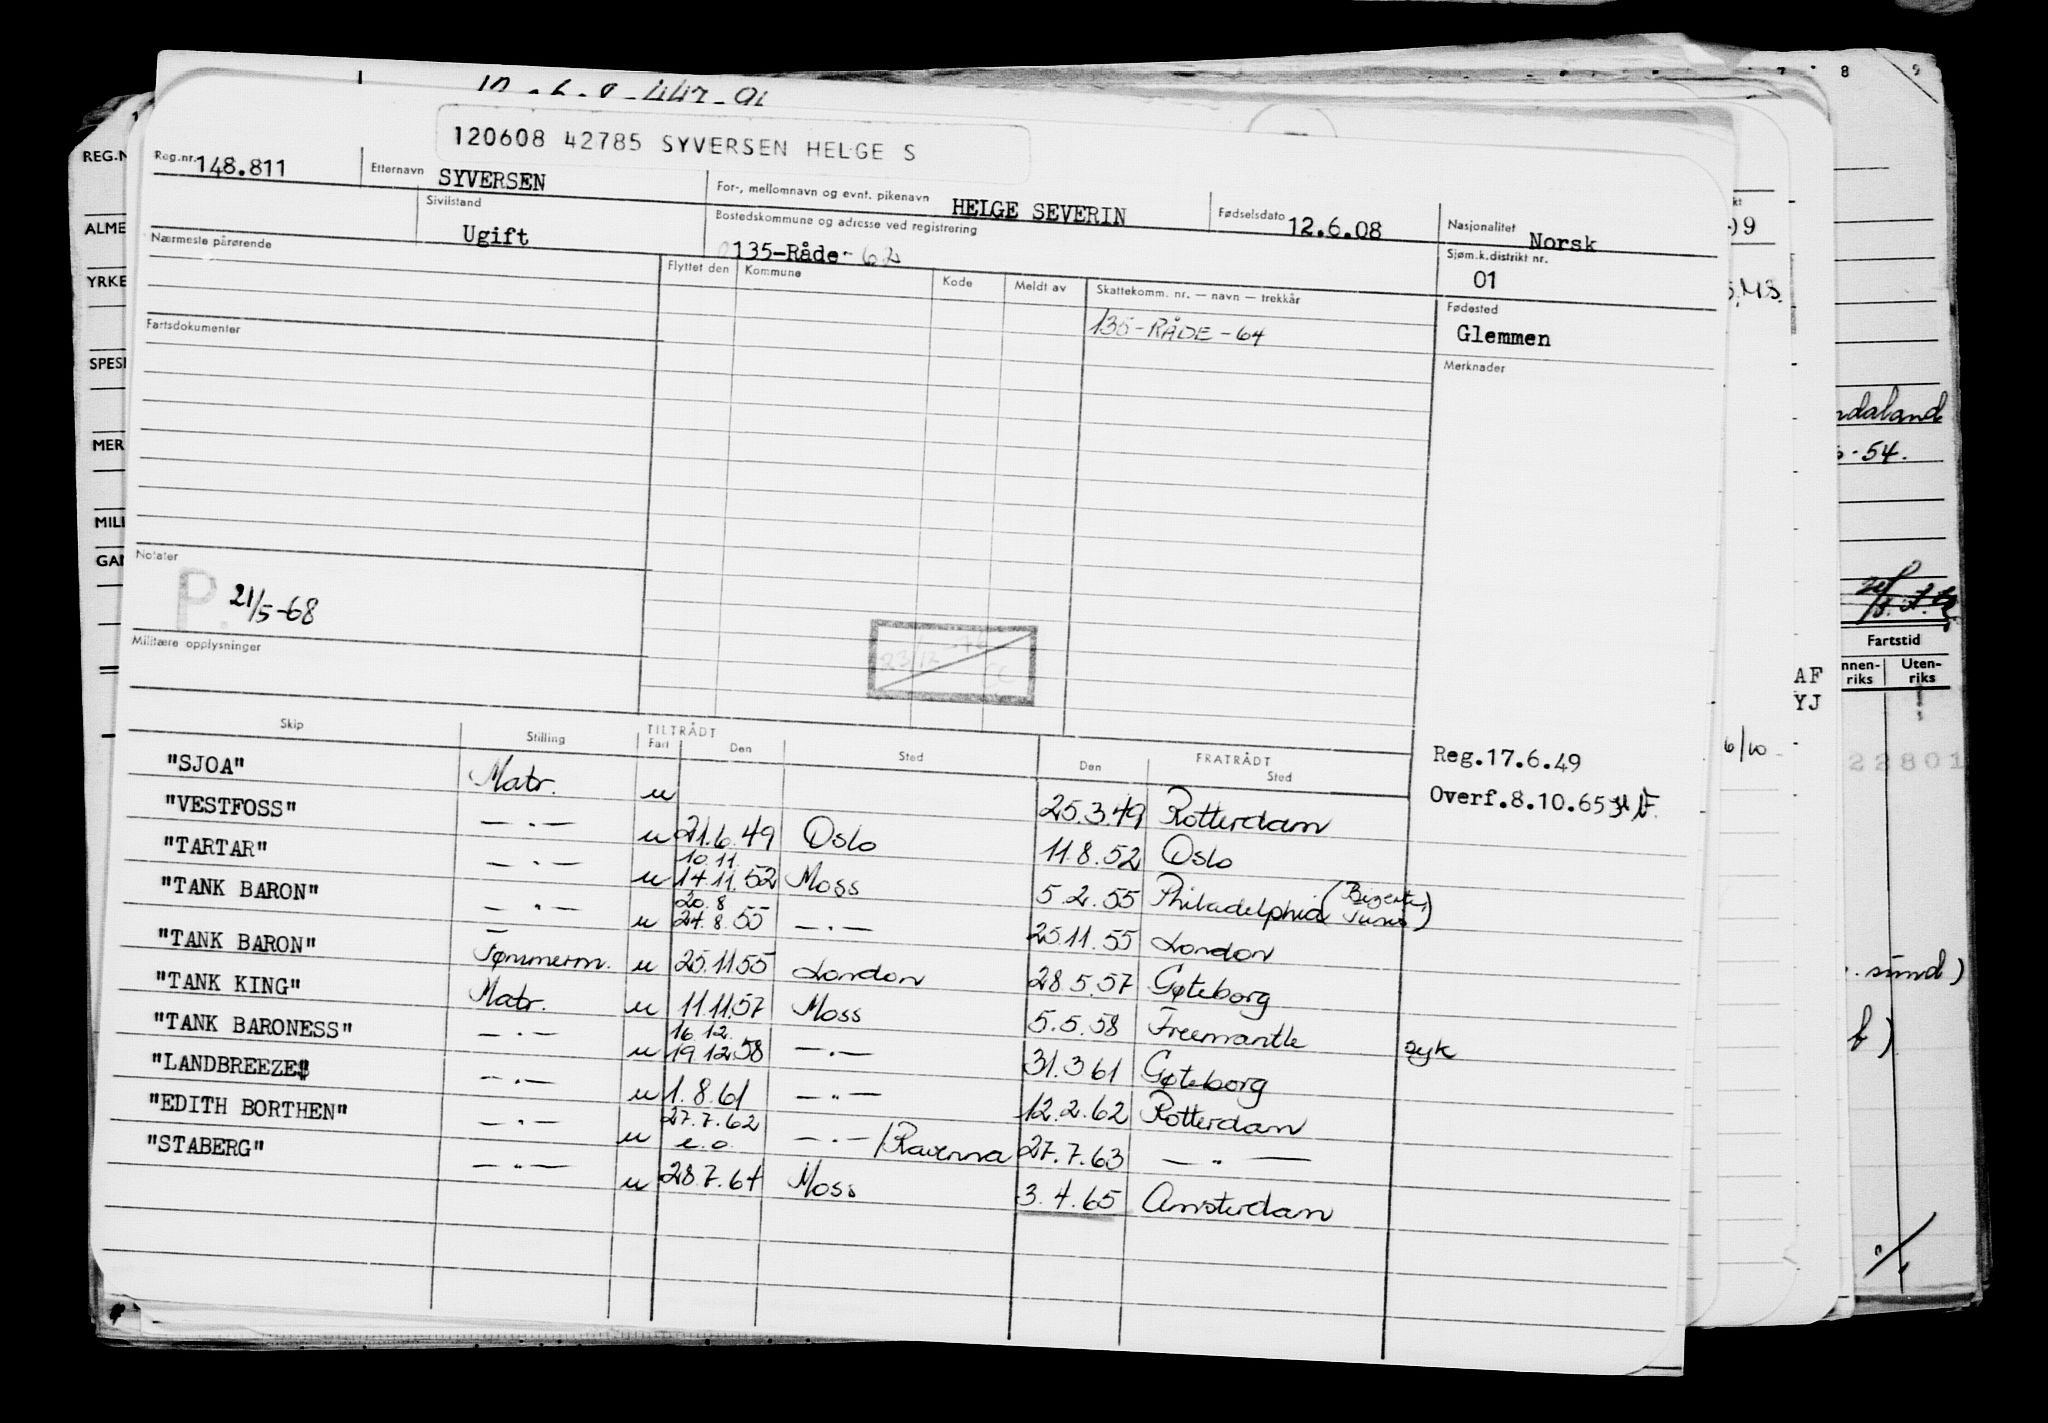 120608 42785 SYVERSEN HELGE S
Reg.nr. 148.811 Etternavn SYVERSEN For-, mellomnavn og evnt. pikenavn HELGE SEVERIN Fødselsdato 12.6.08 Nasjonalitet Norsk
Sivilstand Ugift Bostedskommune og adresse ved registrering 0135-Råde-62 Sjøm.k.distrikt nr. 01
Nærmeste pårørende Flyttet den Kommune Kode Meldt av Skattekomm. nr. — navn — trekkår Fødested Glemmen
135-RÅDE-64
Fartsdokumenter Merknader
Notater
P. 21/5-68
Militære opplysninger
Skip Stilling TILTRÅDT Fart Den Sted FRATRÅDT Den Sted
Reg.17.6.49
Overf.8.10.65
"SJOA" Matr. u 25.3.49 Rotterdam
"VESTFOSS" — . — u 21.6.49 Oslo 11.8.52 Oslo
10.11.
"TARTAR" — . — u 14.11.52 Moss 5.2.55 Philadelphia (Bizerta, Tunis)
20.8
"TANK BARON" — . — u 24.8.55 — . — 25.11.55 London
"TANK BARON" Tømmerm. u 25.11.55 London 28.5.57 Gøteborg
"TANK KING" Matr. u 11.11.57 Moss 5.5.58 Freemantle syk
16.12.
"TANK BARONESS" — . — u 19.12.58 — . — 31.3.61 Gøteborg
"LANDBREEZE" — . — u 1.8.61 — . — 12.2.62 Rotterdam
27.7.62
"EDITH BORTHEN" — . — u e.o. — . — /Ravenna 27.7.63 — " —
"STABERG" — " — u 28.7.64 Moss 3.4.65 Amsterdam
REG.N
ALME
YRKE
SPESI
MER
MILI
GAN
8 9
09
ndaland
-54.
Fartstid
nnen-riks Uten-riks
AF
YJ
6/10
22801
sund)
b)